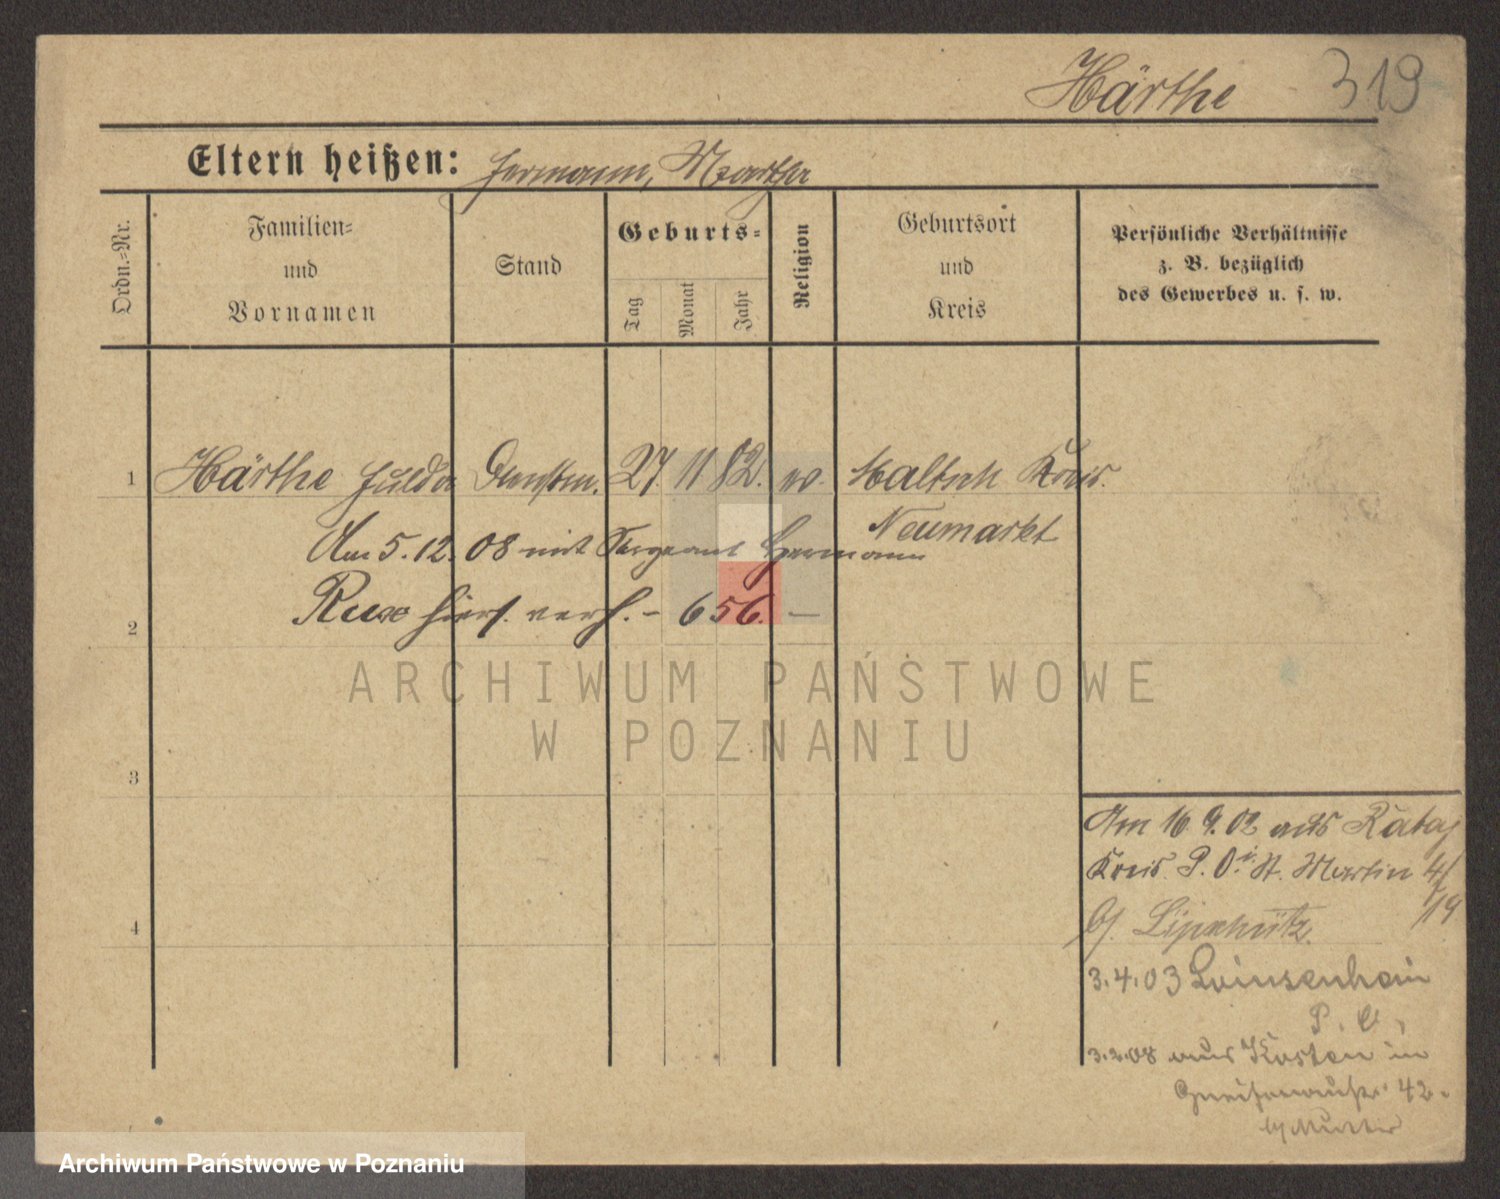 Härthe 319
Eltern heißen: Hermann, Martha
Ordn.=Nr.
Familien=
und
Vornamen
Stand
Geburts=
Tag
Monat
Jahr
Religion
Geburtsort
und
Kreis
Persönliche Verhältnisse
z. B. bezüglich
des Gewerbes u. s. w.
1 Härthe Hulda 27. 11 82. Maltsch Kreis.
Neumarkt
Am 5.12.08 mit Sergeant Hermann
hiers. verh. – 656. –
2
3
4
Am 16.9.02 aus Rataj
Kreis P. O. i. St. Martin 4/
19
bj. Lipschütz.
3.4.03 Luisenhain
P. O.
3.2.08 aus Kosten in
Gneisenaustr. 42.
bj Mutter
ARCHIWUM PAŃSTWOWE
W POZNANIU
Archiwum Państwowe w Poznaniu